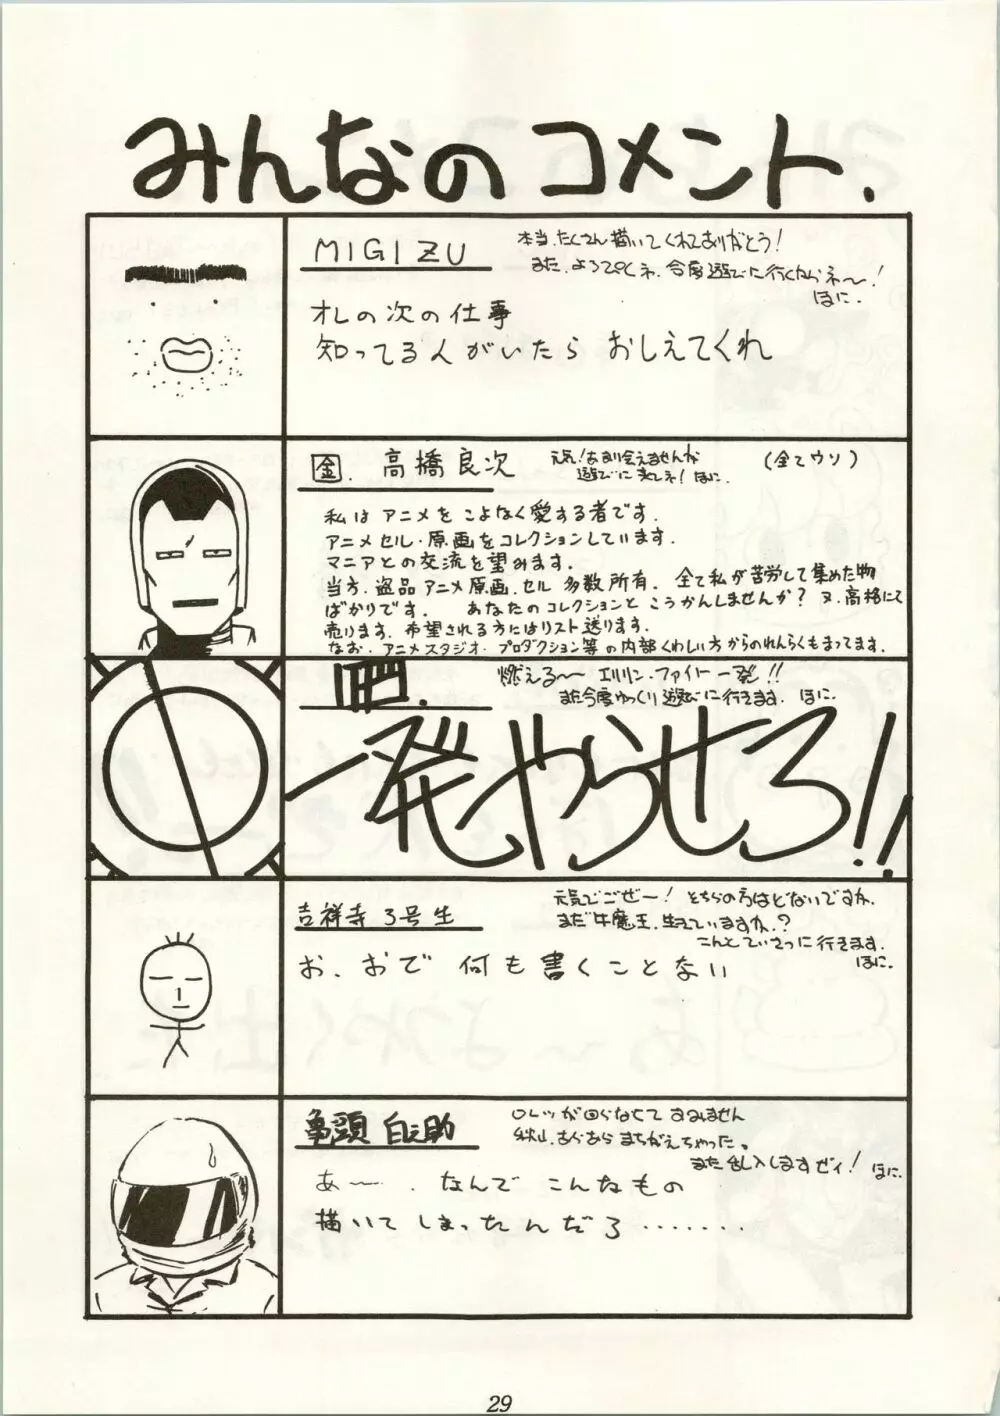 みんなのコメント.
MIGIZU
本当、たくさん描いてくれてありがとう!
また、よろぴくネ、今度遊びに行くからネ〜!
ほに.
オレの次の仕事
知ってる人がいたら おしえてくれ
金. 高橋良次
元気!あまり会えませんが
遊びに来てネ! ほに.
(全てウソ)
私は アニメを こよなく愛する者です.
アニメセル・原画をコレクションしています.
マニアとの交流を望みます.
当方、盗品アニメ原画、セル 多数所有. 全て私が苦労して集めた物
ばかりです. あなたのコレクションと こうかんしませんか? 又、高格にて
売ります. 希望される方にはリスト送ります.
なお、アニメスタジオ・プロダクション等の内部くわしい方からのれんらくもまってます.
肥.
燃える〜 エルリン・ファイバー 一発!!
また今度ゆっくり遊びに行きます. ほに.
一発やらせろ!!
吉祥寺3号生
元気でごぜー! そちらの方はどないですか.
まだ牛魔王、生きていますか.?
こんどていさつに行きます.
ほに.
お、おで 何も書くことない
亀頭 白之助
ロレツが回らなくて すみません
あらあら まちがえちゃった。
また乱入しますゼイ! ほに.
あ〜. なんで こんなもの
描いて しまったんだろ・・・・・・・
29